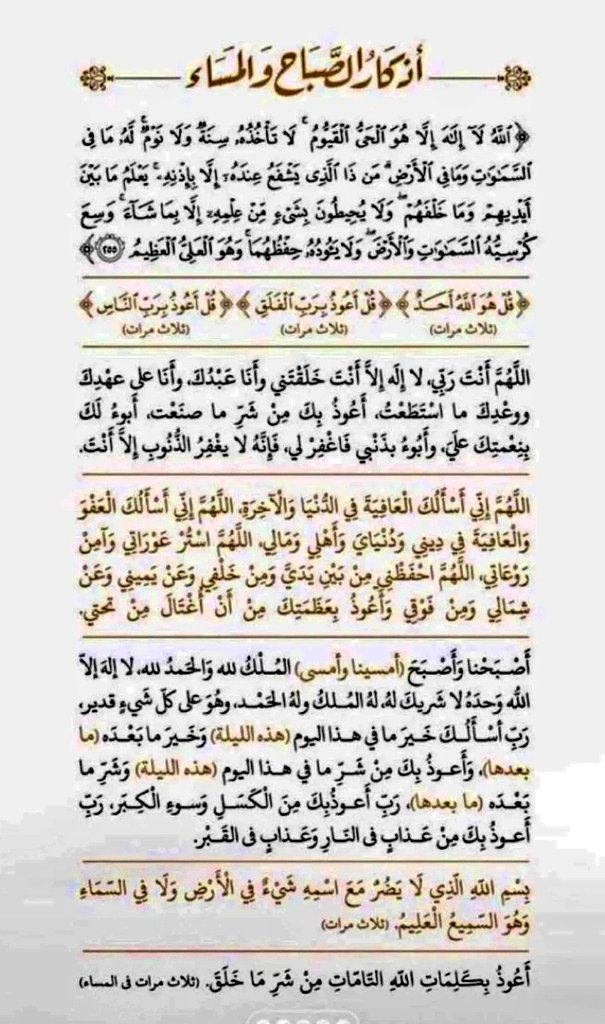 أذكار الصَّبَاح وَالمَسَاء
﴿ ٱللَّهُ لَآ إِلَٰهَ إِلَّا هُوَ ٱلْحَىُّ ٱلْقَيُّومُ ۚ لَا تَأْخُذُهُۥ سِنَةٌ وَلَا نَوْمٌ ۚ لَّهُۥ مَا فِى
ٱلسَّمَٰوَٰتِ وَمَا فِى ٱلْأَرْضِ ۗ مَن ذَا ٱلَّذِى يَشْفَعُ عِندَهُۥٓ إِلَّا بِإِذْنِهِۦ ۚ يَعْلَمُ مَا بَيْنَ
أَيْدِيهِمْ وَمَا خَلْفَهُمْ ۖ وَلَا يُحِيطُونَ بِشَىْءٍ مِّنْ عِلْمِهِۦٓ إِلَّا بِمَا شَآءَ ۚ وَسِعَ
كُرْسِيُّهُ ٱلسَّمَٰوَٰتِ وَٱلْأَرْضَ ۖ وَلَا يَـُٔودُهُۥ حِفْظُهُمَا ۚ وَهُوَ ٱلْعَلِىُّ ٱلْعَظِيمُ ٢٥٥ ﴾
﴿ قُلْ هُوَ ٱللَّهُ أَحَدٌ ﴾ ﴿ قُلْ أَعُوذُ بِرَبِّ ٱلْفَلَقِ ﴾ ﴿ قُلْ أَعُوذُ بِرَبِّ ٱلنَّاسِ ﴾
(ثلاث مرات) (ثلاث مرات) (ثلاث مرات)
اللَّهُمَّ أَنْتَ رَبِّي، لا إِلَه إلاَّ أَنْتَ خَلَقْتَني وأَنَا عَبْدُكَ، وأَنَا على عهْدِكَ
ووعْدِكَ ما اسْتَطَعْتُ، أَعُوذُ بِكَ مِنْ شَرِّ ما صنَعْت، أَبوءُ لَكَ
بِنِعْمتِكَ عليَّ، وأَبُوءُ بذَنْبي فَاغْفِرْ لي، فَإنَّهُ لا يغْفِرُ الذُّنُوبِ إلاَّ أَنْتَ.
اللَّهُمَّ إِنِّي أَسْأَلُكَ الْعَافِيَةَ فِي الدُّنْيَا وَالْآخِرَةِ، اللَّهُمَّ إِنِّي أَسْأَلُكَ الْعَفْوَ
وَالْعَافِيَةَ فِي دِينِي وَدُنْيَايَ وَأَهْلِي وَمَالِي، اللَّهُمَّ اسْتُرْ عَوْرَاتِي وَآمِنْ
رَوْعَاتِي، اللَّهُمَّ احْفَظْنِي مِنْ بَيْنِ يَدَيَّ وَمِنْ خَلْفِي وَعَنْ يَمِينِي وَعَنْ
شِمَالِي وَمِنْ فَوْقِي وَأَعُوذُ بِعَظَمَتِكَ مِنْ أَنْ أُغْتَالَ مِنْ تَحْتِي.
أَصْبَحْنا وَأَصْبَحَ (أمسينا وأمسى) المُلْكُ لله وَالحَمدُ لله، لا إلهَ إلاّ
اللّهُ وَحدَهُ لا شَريكَ لهُ، لهُ المُلكُ ولهُ الحَمْد، وهُوَ على كلّ شَيءٍ قدير،
رَبِّ أسْأَلُكَ خَيرَ ما في هذا اليوم (هذه الليلة) وَخَيرَ ما بَعْدَه (ما
بعدها)، وَأَعوذُ بِكَ مِنْ شَرِّ ما في هذا اليوم (هذه الليلة) وَشَرِّ ما
بَعْدَه (ما بعدها)، رَبِّ أَعوذُبِكَ مِنَ الْكَسَلِ وَسوءِ الْكِبَر، رَبِّ
أَعوذُ بِكَ مِنْ عَذابٍ في النّارِ وَعَذابٍ في القَبْر.
بِسْمِ اللّهِ الَّذِي لَا يَضُرُّ مَعَ اسْمِهِ شَيْءٌ فِي الْأَرْضِ وَلَا فِي السَّمَاءِ
وَهُوَ السَّمِيعُ الْعَلِيمُ. (ثلاث مرات)
أَعُوذُ بِكَلِمَاتِ اللّهِ التَّامَّاتِ مِنْ شَرِّ مَا خَلَقَ. (ثلاث مرات فى المساء)